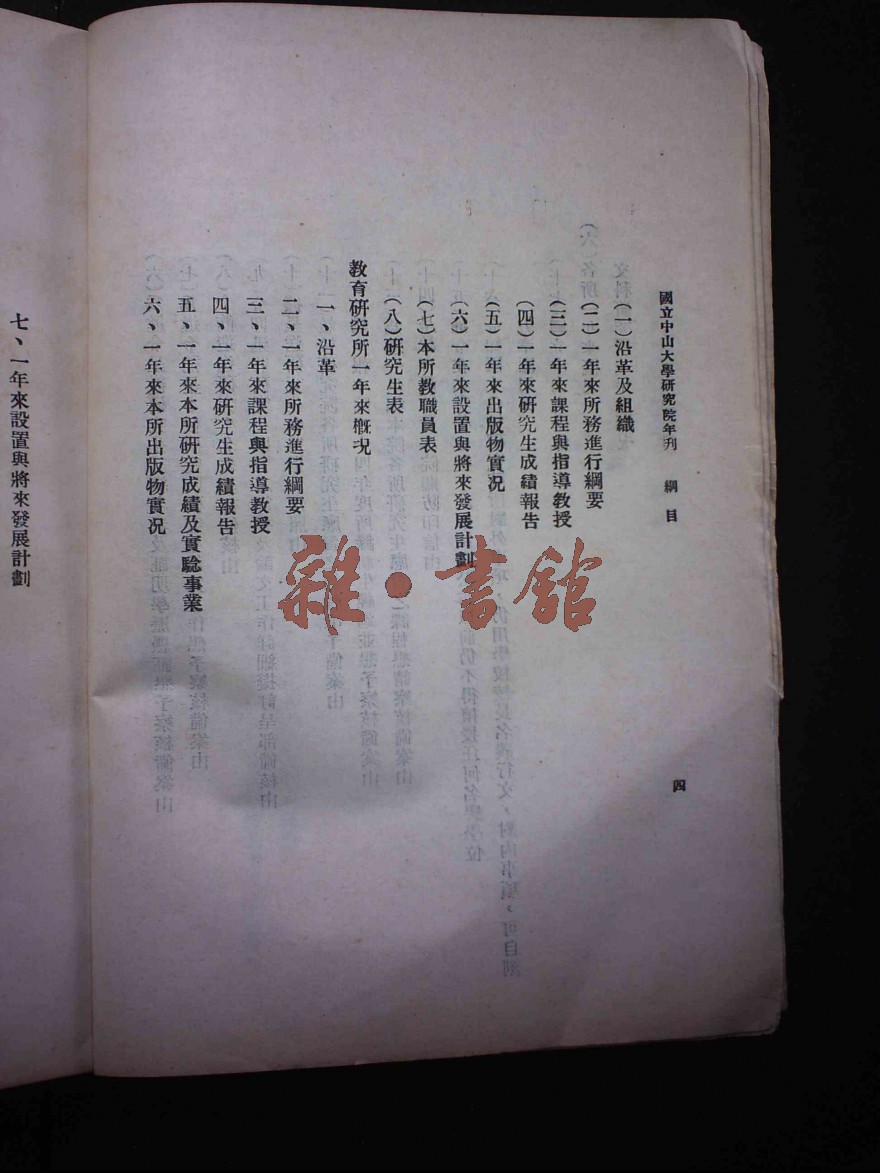 國立中山大學研究院年刊　綱目
四
（一）沿革及組織
（二）一年來所務進行綱要
（三）一年來課程與指導教授
（四）一年來研究生成績報告
（五）一年來出版物實況
（六）一年來設置與將來發展計劃
（七）本所教職員表
（八）研究生表
教育研究所一年來槪况
一、沿革
二、一年來所務進行綱要
三、一年來課程與指導教授
四、一年來研究生成績報告
五、一年來本所研究成績及實驗事業
六、一年來本所出版物實況
七、一年來設置與將來發展計劃
雜·書館